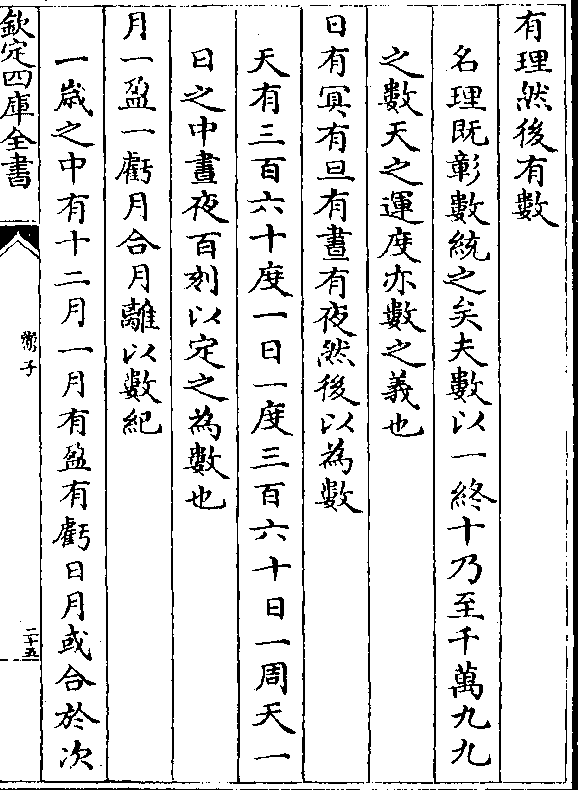 有理然後有數
名理既彰數統之矣夫數以一終十乃至千萬九九
之數天之運度亦數之義也
日有冥有旦有晝有夜然後以為數
天有三百六十度一日一度三百六十日一周天一
日之中晝夜百刻以定之為數也
月一盈一虧月合月離以數紀
一嵗之中有十二月一月有盈有虧日月或合於次
欽定四庫全書
鬻子
二十五